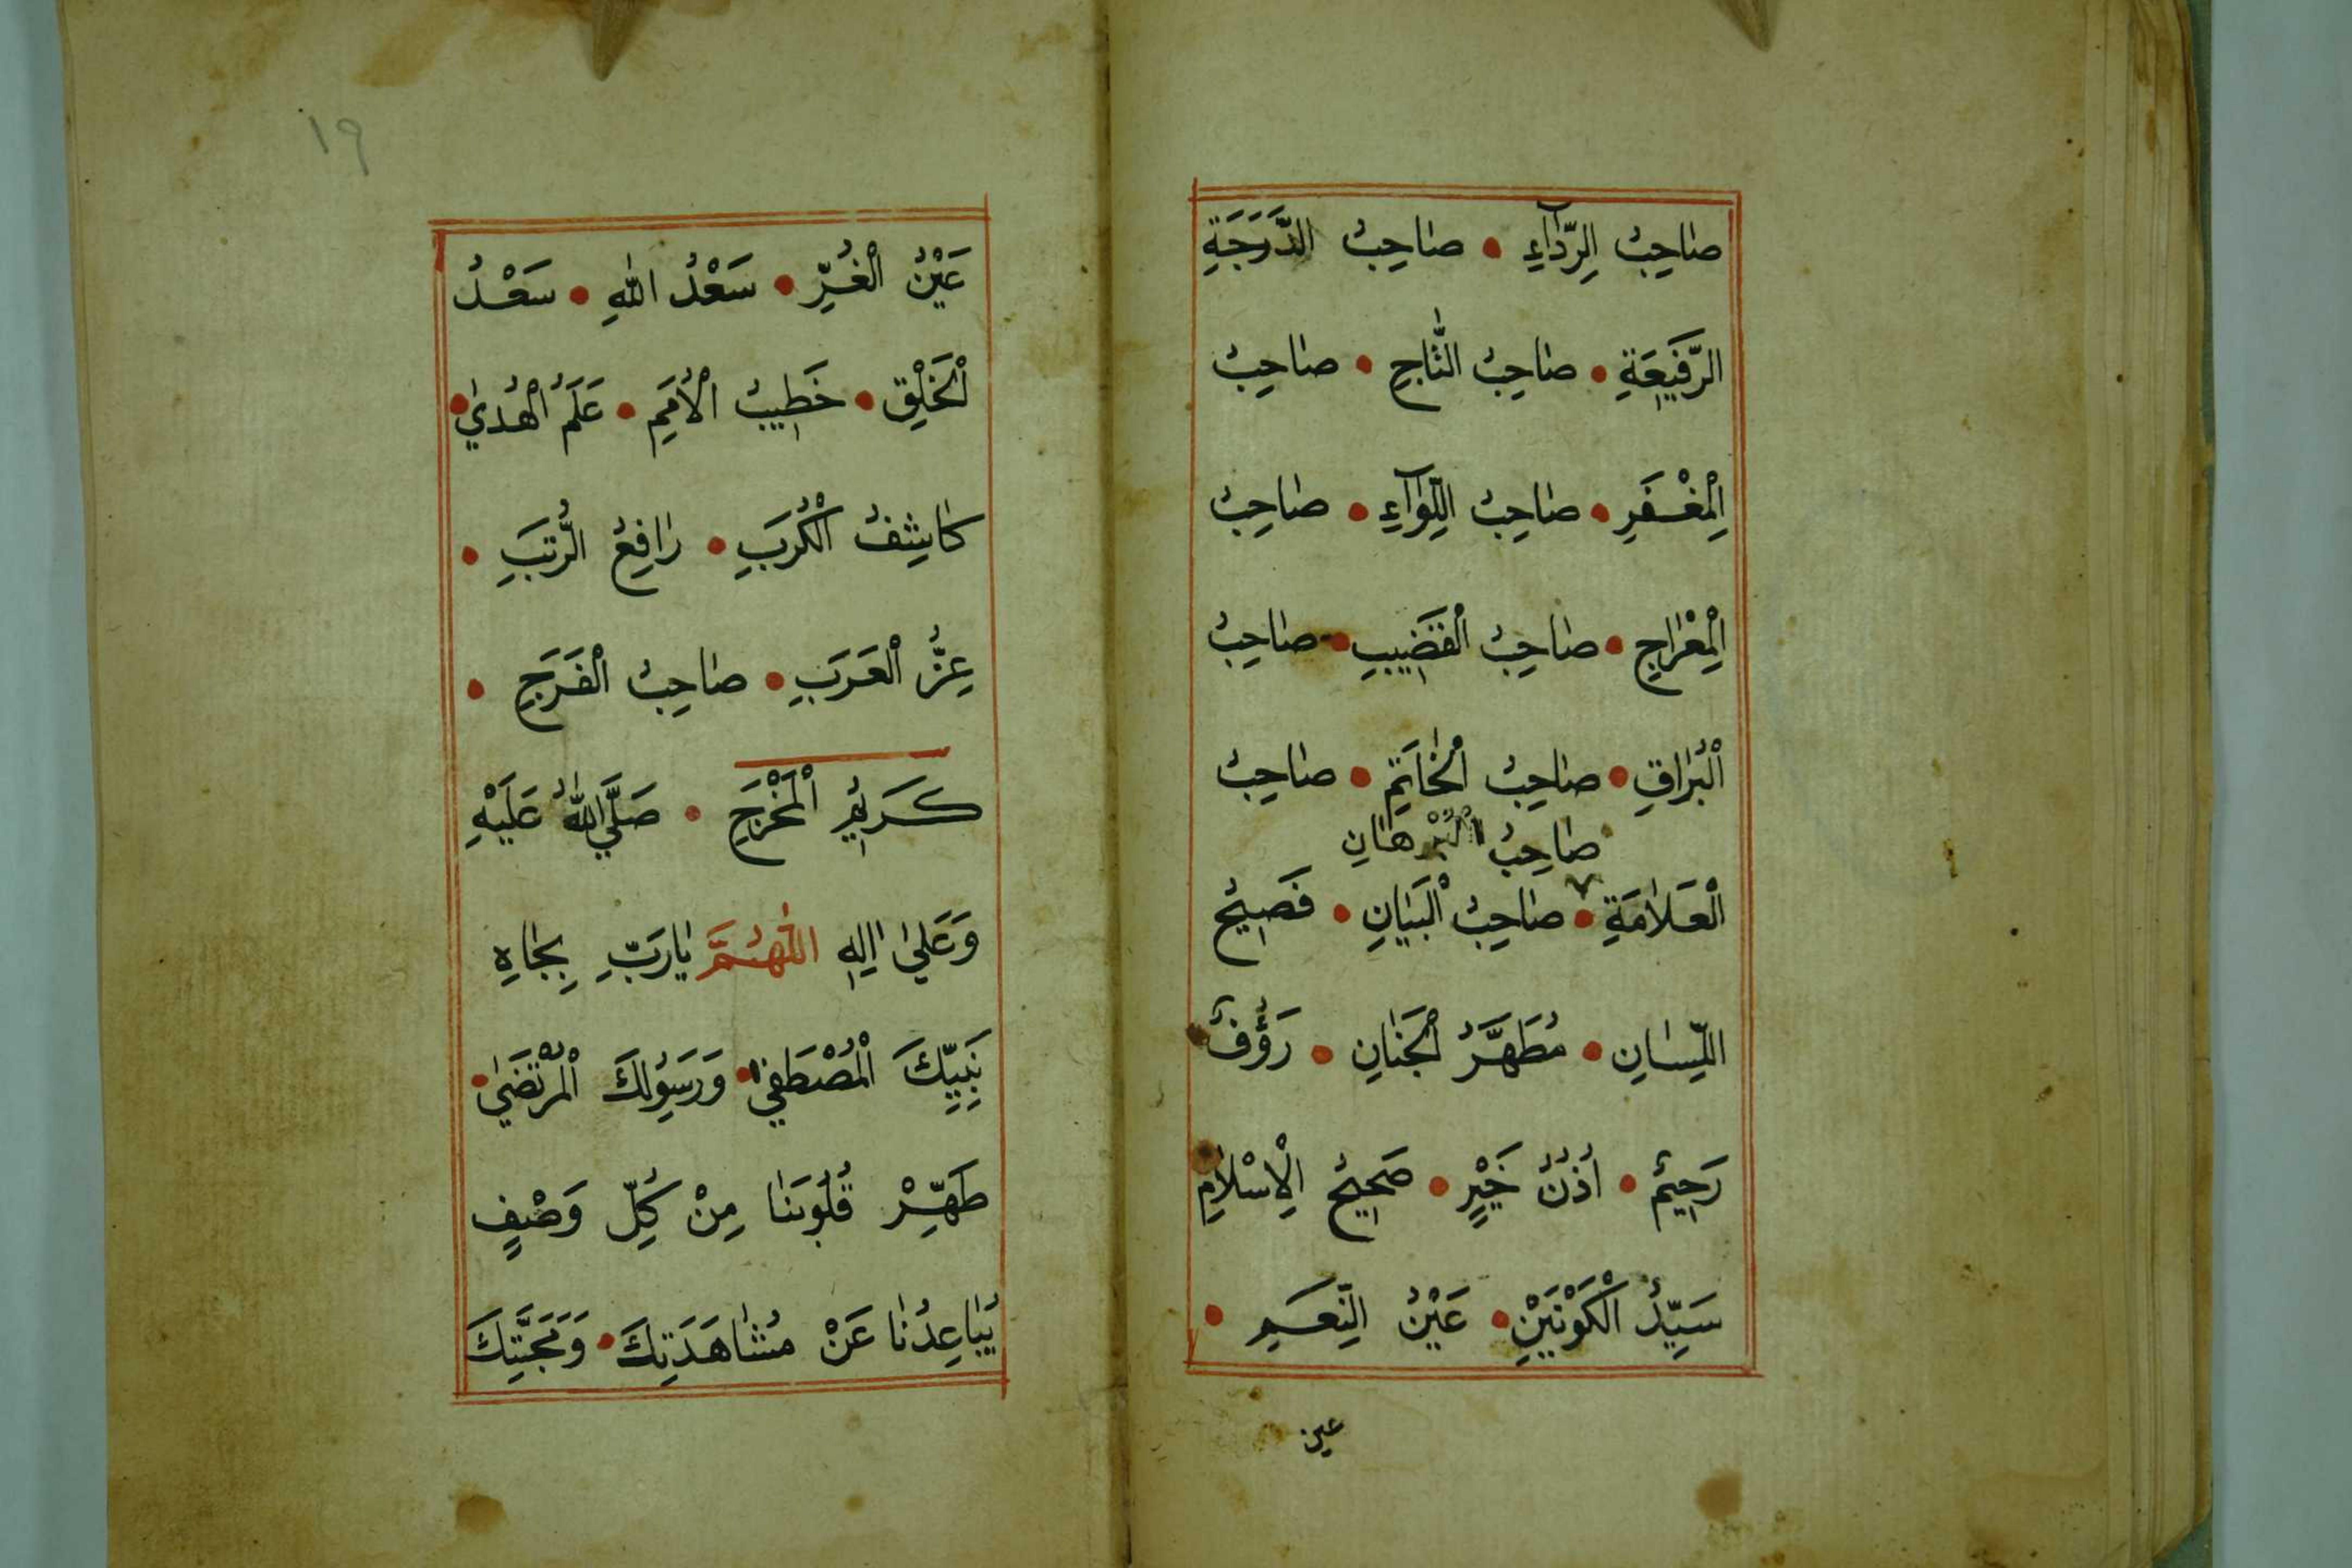 صَاحِبُ الرِّدَآءِ • صَاحِبُ الدَّرَجَةِ
الرَّفِيعَةِ • صَاحِبُ التَّاجِ • صَاحِبُ
الْمِغْفَرِ • صَاحِبُ اللِّوَآءِ • صَاحِبُ
الْمِعْرَاجِ • صَاحِبُ الْقَضِيبِ • صَاحِبُ
الْبُرَاقِ • صَاحِبُ الْخَاتَمِ • صَاحِبُ
صَاحِبُ الْبُرْهَانِ
الْعَلَامَةِ • صَاحِبُ الْبَيَانِ • فَصِيحُ
اللِّسَانِ • مُطَهَّرُ الْجَنَانِ • رَؤُفٌ
رَحِيمٌ • اُذُنُ خَيْرٍ • صَحِيحُ الْاِسْلَامِ
سَيِّدُ الْكَوْنَيْنِ • عَيْنُ النَّعِيمِ •
عين
١٩
عَيْنُ الْغُرِّ • سَعْدُ اللهِ • سَعْدُ
الْخَلْقِ • خَطِيبُ الْاُمَمِ • عَلَمُ الْهُدَي •
كَاشِفُ الْكُرَبِ • رَافِعُ الرُّتَبِ •
عِزُّ الْعَرَبِ • صَاحِبُ الْفَرَجِ •
كَرِيمُ الْمَخْرَجِ • صَلَّي اللهُ عَلَيْهِ
وَعَلَي اٰلِهِ اللّٰهُمَّ يَارَبِّ بِجَاهِ
نَبِيِّكَ الْمُصْطَفَي • وَرَسُولِكَ الْمُرْتَضَي •
طَهِّرْ قُلُوبَنَا مِنْ كُلِّ وَصْفٍ
يُبَاعِدُنَا عَنْ مُشَاهَدَتِكَ • وَمَحَبَّتِكَ